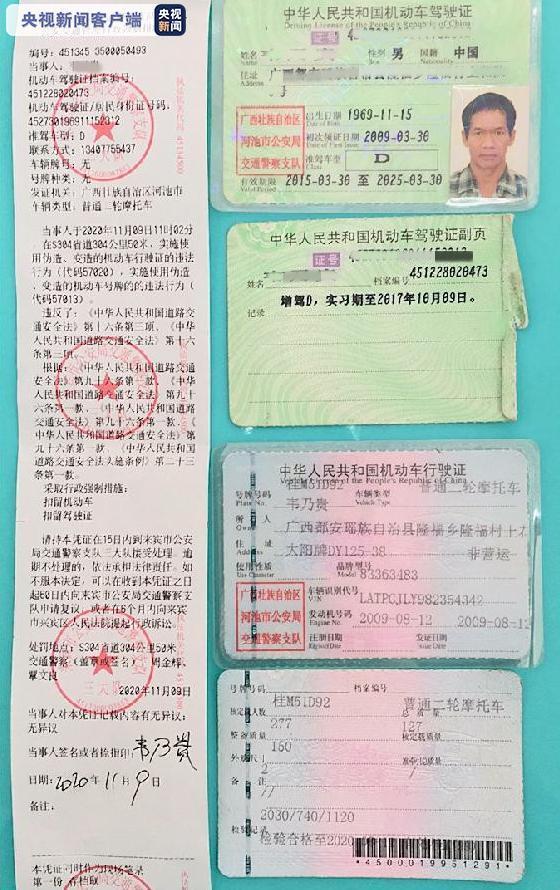 央视新闻客户端
央视新闻
编号：451345 3500050493
当事人：
机动车驾驶证档案编号：
451228020473
机动车驾驶证/居民身份证号码：
452730196911152312
准驾车型：D
联系方式：13407755437
车辆牌号：无
号牌种类：无
发证机关：广西壮族自治区河池市
车辆类型：普通二轮摩托车
当事人于2020年11月09日11时02分
在S304省道304公里50米，实施使
用伪造、变造的机动车行驶证的违法
行为（代码57020），实施使用伪造
、变造的机动车号牌的的违法行为（
代码57013）。
违反了：《中华人民共和国道路交
通安全法》第十六条第三项，《中华
人民共和国道路交通安全法》第十六
条第三项。
根据：《中华人民共和国道路交通
安全法》第九十六条第一款，《中华
人民共和国道路交通安全法》第九十
六条第一款，《中华人民共和国道路
交通安全法》第九十六条第一款，《
中华人民共和国道路交通安全法》第
九十六条第一款，《中华人民共和国
道路交通安全法实施条例》二十三
条第一款。
采取行政强制措施：
扣留机动车
扣留驾驶证
请持本凭证在15日内到来宾市公安
局交通警察支队三大队接受处理。逾
期不处理的，依法承担法律责任。如
不服本决定，可以在收到本凭证之日
起60日内向来宾市公安局交通警察支
队申请复议；或者在6个月内向来宾
市兴宾区人民法院提起行政诉讼
处罚地点：S304省道304公里50米
交通警察（盖章或签名）：周金辉、
覃文良
三大队
2020年11月09日
当事人对本凭证记载内容有无异议：
无异议
当事人签名或者捺指印：韦乃贵
日期：2020年11月9日
备注：
本凭证可同时作为现场笔录
第一份 存档联
中华人民共和国机动车驾驶证
Driving License of the People's Republic of China
证号
姓名
Name
性别 男 国籍 中国
Nationality
住址
出生日期 1969-11-15
初次领证日期 2009-03-30
准驾车型 D
广西壮族自治区
河池市公安局
交通警察支队
有效期限 2015-03-30 至 2025-03-30
Valid Period
中华人民共和国机动车驾驶证副页
证号
姓名
档案编号 451228020473
记录
增驾D，实习期至2017年10月09日。
中华人民共和国机动车行驶证
号牌号码 桂M51D92 车辆类型 普通二轮摩托车
Plate No. Vehicle Type
所有人 韦乃贵
住址 广西都安瑶族自治县隆福乡隆福村十
太阳牌DY125-38 非营运
使用性质 品牌型号
Use Character Model
83363483
车辆识别代号
VIN
LATPCJLY982354342
发动机号码
Engine No.
2009-08-12 2009-08-12
注册日期 发证日期
广西壮族自治区
河池市公安局
交通警察支队
号牌号码 桂M51D92 档案编号
普通二轮摩托车
核定载人数 总质量
277 127
整备质量 核定载质量
150
外廓尺寸
2
备注
2030/740/1120
检验记录 检验合格至2020
*4500019951291*